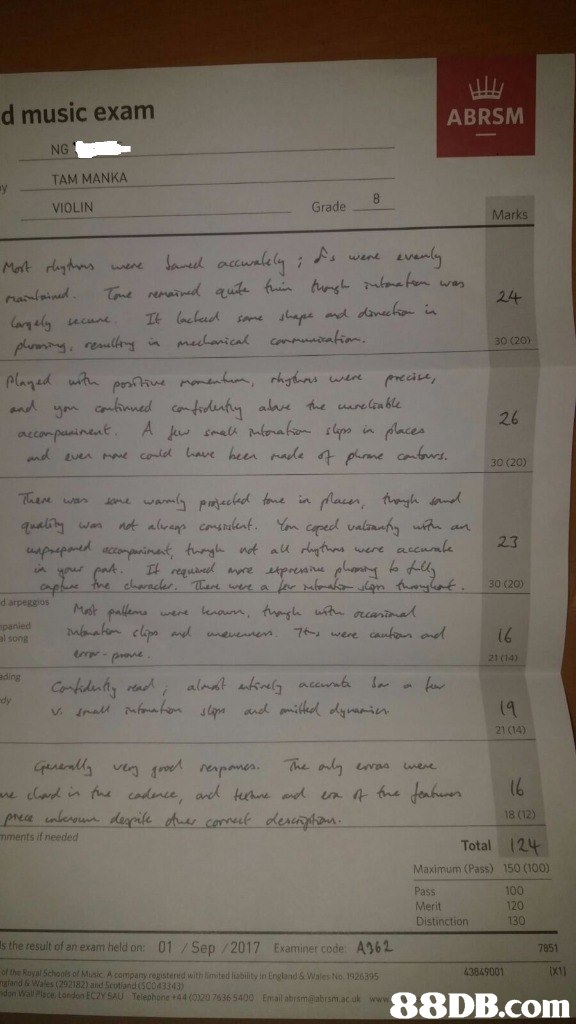 d music exam
ABRSM
NG
y TAM MANKA
VIOLIN Grade 8
Marks
Most rhythms were learned accurately; were evenly
maintained. Tone remained quite thin though intonation was
largely secure. It lacked some shape and direction in
phrasing, resulting in mechanical communication.
24
30 (20)
Played with positive momentum, rhythms were precise,
and you continued confidently above the unreliable
accompaniment. A few small intonation slips in places
and even more could have been made of phrase contours.
26
30 (20)
There was some warmly projected tone in places, though sound
quality was not always consistent. You coped valiantly with an
unprepared accompaniment, though not all rhythms were accurate
in your part. It required more expressive phrasing to fully
capture the character. There were a few intonation slips throughout.
23
30 (20)
d arpeggios
Most patterns were known, though with occasional
panied
al song
intonation slips and unevenness. 7ths were cautious and
error-prone.
16
21 (14)
ading
dy
Confidently read; almost entirely accurate bar a few
v. small intonation slips and omitted dynamics
19
21 (14)
Generally very good responses. The only errors were
chord in the cadence, and texture and era of the features
piece unknown despite other correct descriptions.
16
18 (12)
mments if needed
Total 124
Maximum (Pass) 150 (100)
Pass 100
Merit 120
Distinction 130
s the result of an exam held on: 01 / Sep / 2017 Examiner code: A362
7851
43849001 (X1)
of the Royal Schools of Music. A company registered with limited liability in England & Wales No. 1926395
ngland & Wales (292182) and Scotland (SC043343)
ndon Wall Place, London EC2Y 5AU Telephone +44 (0)20 7636 5400 Email abrsm@abrsm.ac.uk www
88DB.com